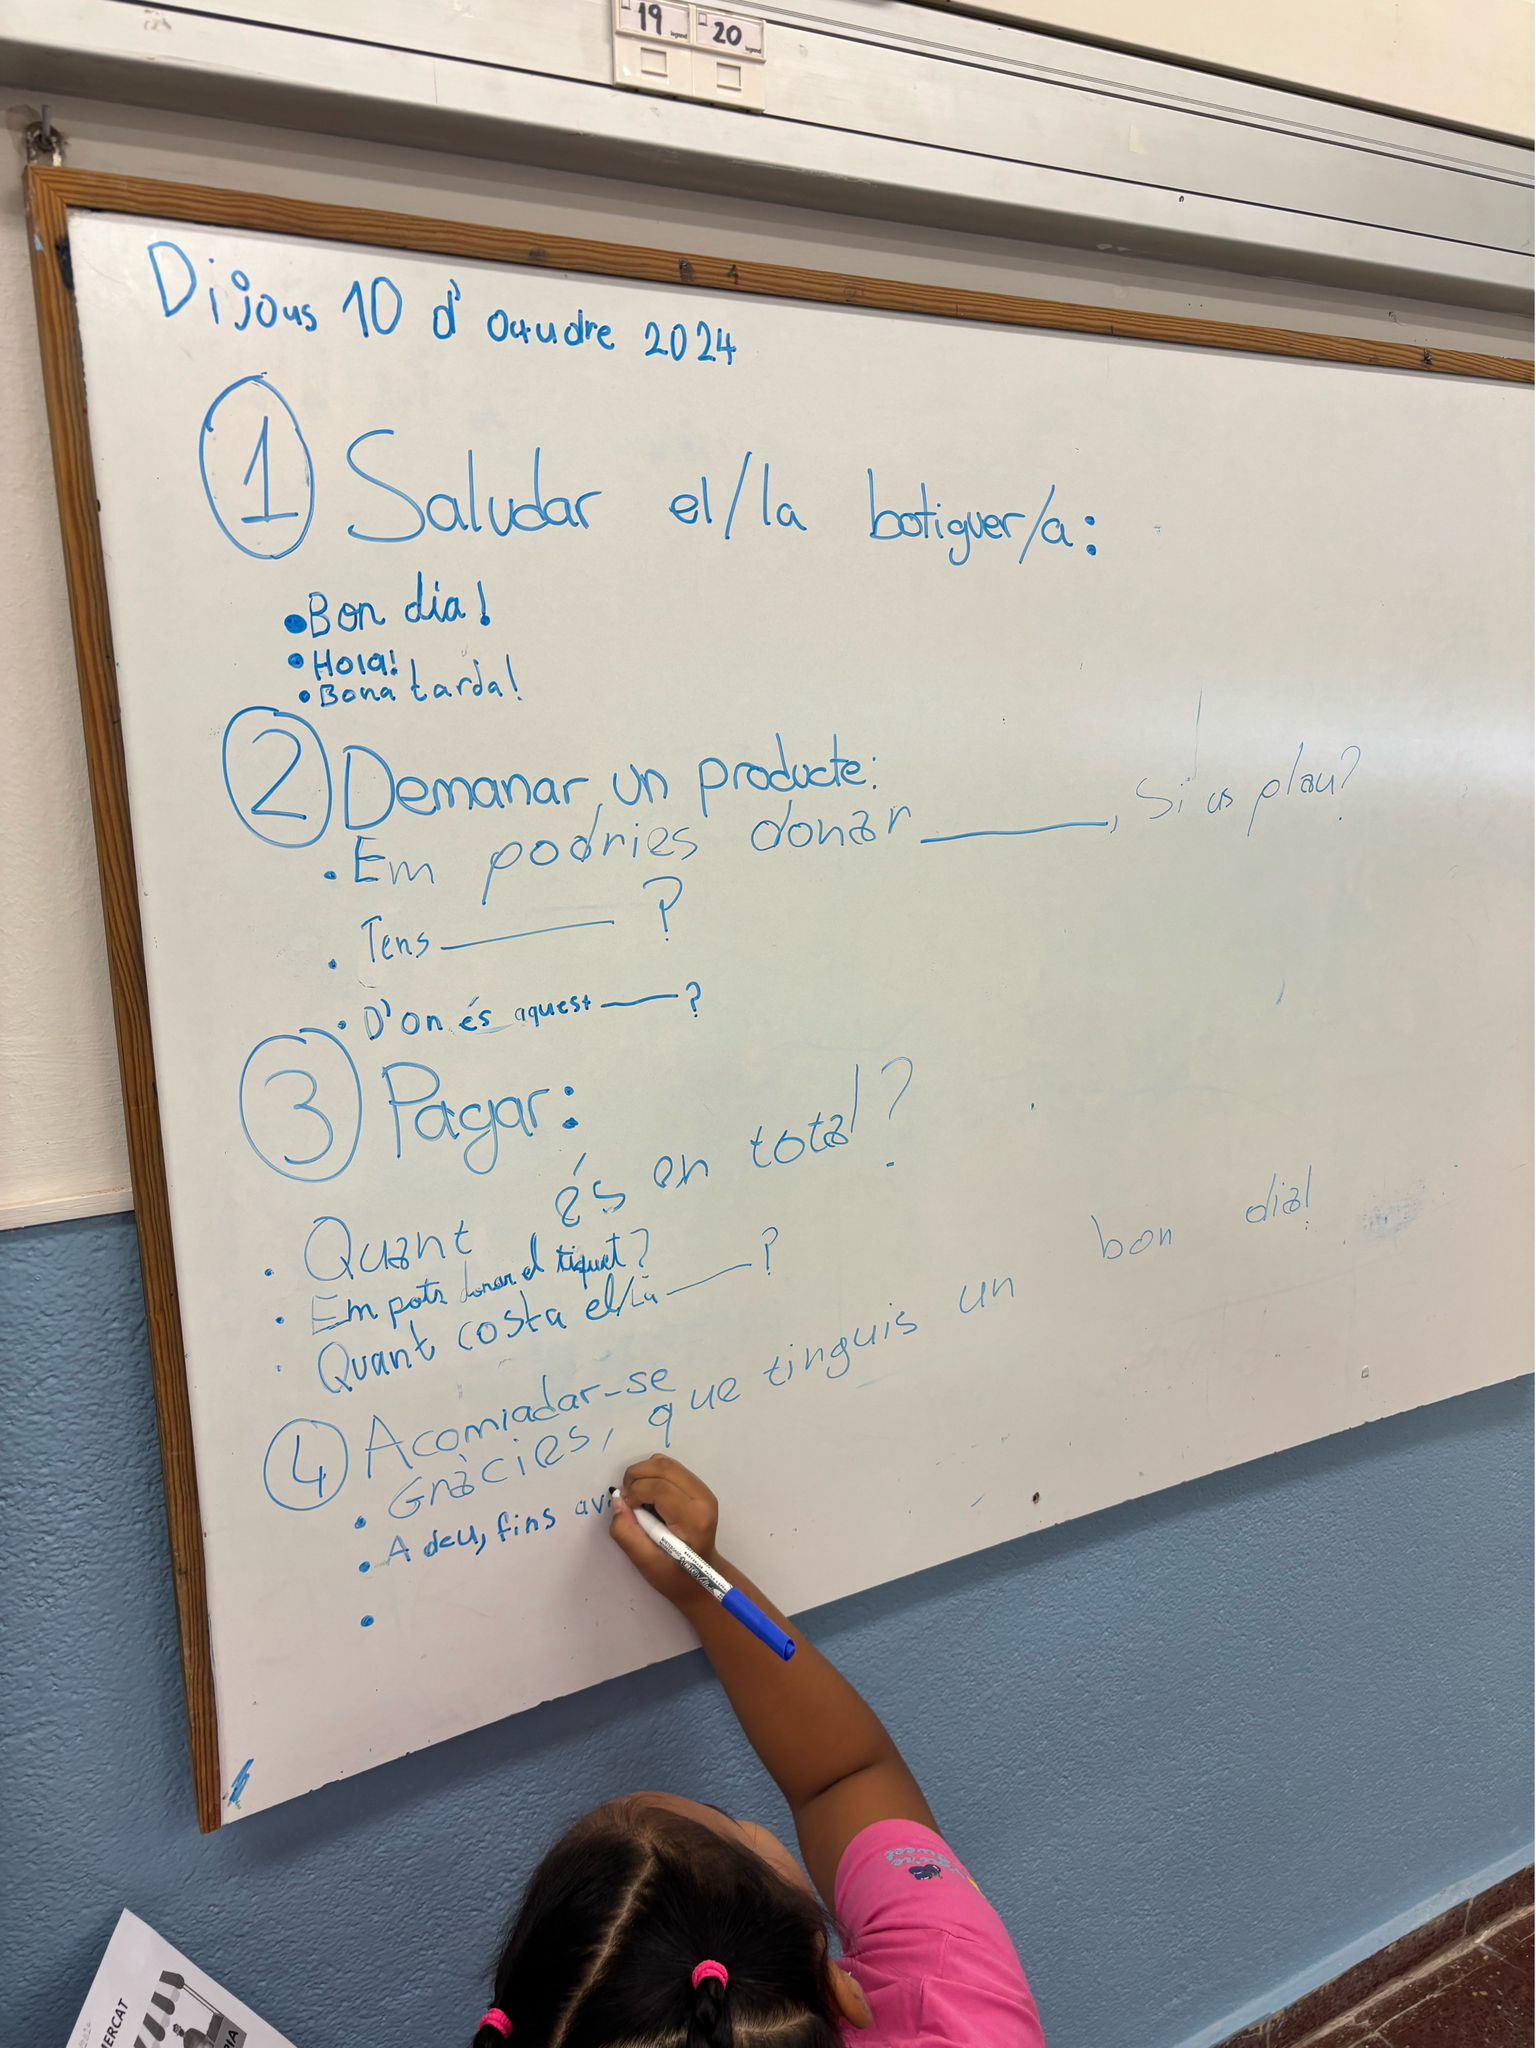 19 20
legrand legrand
Dijous 10 d' octudre 2024
1 Saludar el/la botiguer/a:
• Bon dia!
• Hola!
• Bona tarda!
2 Demanar un producte:
• Em podries donar ______, Si us plau?
• Tens ______ ?
• D'on és aquest ____?
3 Pagar:
• Quant és en total?
• Em pots donar el tiquet?
• Quant costa el/la ____?
4 Acomiadar-se
• Gràcies, que tinguis un bon dia!
• A deu, fins avi
•
MERCAT
RIA